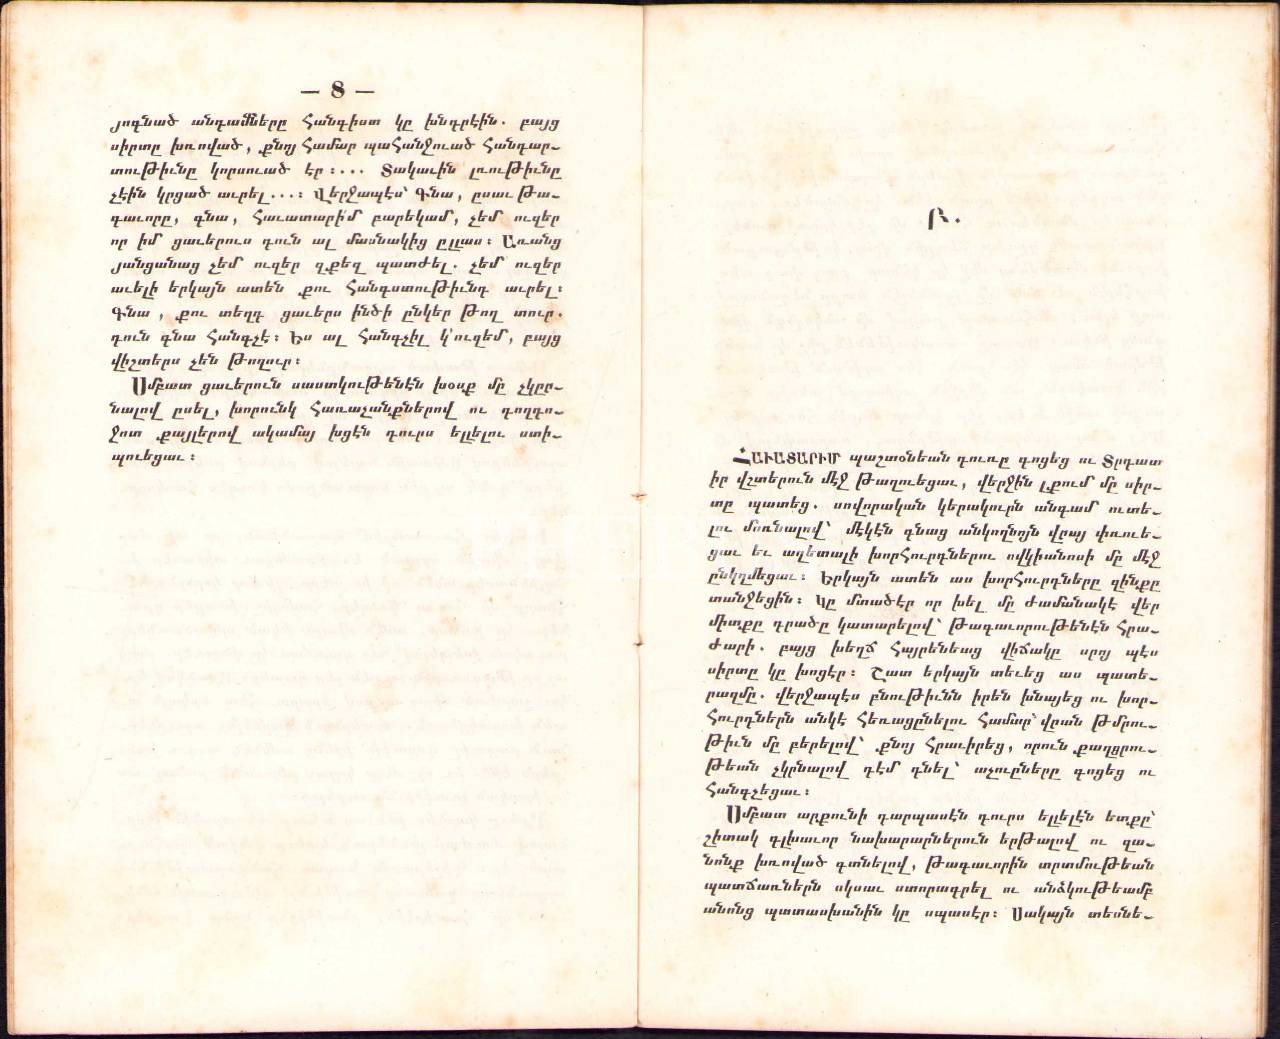 — 8 —
յոգնած անդամները հանգիստ կը խնդրէին. բայց
սիրտը խռոված, քնոյ համար պահանջուած հանդար-
տութիւնը կորսուած էր :... Տակաւին լռութիւնը
չէին կրցած աւրել...: Վերջապէս՝ Գնա, ըսաւ Թա-
գաւորը, գնա, հաւատարիմ բարեկամ, չեմ ուզեր
որ իմ ցաւերուս դուն ալ մասնակից ըլլաս: Առանց
յանցանաց չեմ ուզեր զքեզ պատժել. չեմ ուզեր
աւելի երկայն ատեն քու հանգստութիւնդ աւրել:
Գնա, քու տեղդ ցաւերս ինծի ընկեր թող տուր.
դուն գնա հանգչէ: Ես ալ հանգչիլ կ'ուզեմ, բայց
վիշտերս չեն թողուր:
Սմբատ ցաւերուն սաստկութենէն խօսք մը չկըր-
նալով ըսել, խորունկ հառաչանքներով ու դողդո-
ջոտ քայլերով ակամայ խցէն դուրս ելլելու ստի-
պուեցաւ:
Բ.
ՀԱՒԱՏԱՐԻՄ պաշտօնեան դուռը գոցեց ու Տրդատ
իր վշտերուն մէջ թաղուեցաւ, վերջին լքում մը սիր-
տը պատեց. սովորական կերակուրն անգամ ուտե-
լու մոռնալով՝ մէկէն գնաց անկողնոյն վրայ փռուե-
ցաւ եւ աղետալի խորհուրդներու ովկիանոսի մը մէջ
ընկղմեցաւ: Երկայն ատեն աս խորհուրդները զինքը
տանջեցին: Կը մտածէր որ խել մը ժամանակէ վեր
միտքը դրածը կատարելով՝ թագաւորութենէն հրա-
ժարի. բայց խեղճ հայրենեաց վիճակը սրոյ պէս
սիրտը կը խոցէր: Շատ երկայն տեւեց աս պատե-
րազմը. վերջապէս բնութիւնն իրեն խնայեց ու խոր-
հուրդներն անկէ հեռացընելու համար՝ վրան թմրու-
թիւն մը բերելով՝ քնոյ հրաւիրեց, որուն քաղցրու-
թեան չկրնալով դէմ դնել՝ աչուըները գոցեց ու
հանգչեցաւ:
Սմբատ արքունի դարպասէն դուրս ելլելէն ետքը՝
շիտակ գլխաւոր նախարարներուն երթալով ու զա-
նոնք խռոված գտնելով, թագաւորին տրտմութեան
պատճառներն սկսաւ ստորագրել ու անձկութեամբ
անոնց պատասխանին կը սպասէր: Սակայն տեսնե-